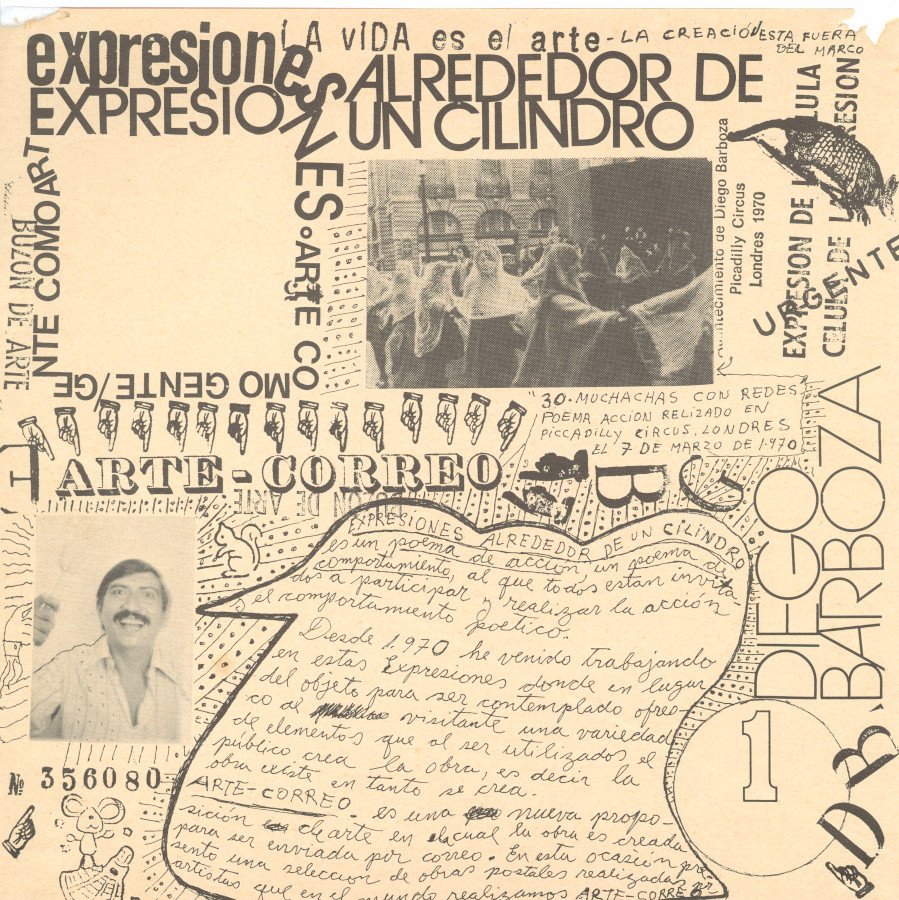 expresiones
LA VIDA es el arte - LA CREACIÓN ESTA FUERA
DEL MARCO
EXPRESIONES • ARTE COMO GENTE/GENTE COMO ART
ALREDEDOR DE
UN CILINDRO
BUZON DE ARTE
Acontecimiento de Diego Barboza
Picadilly Circus
Londres 1970
EXPRESION DE LA CELULA
CELULA DE LA EXPRESION
URGENTE
"30. MUCHACHAS CON REDES"
POEMA ACCION RELIZADO EN
PICCADILLY CIRCUS. LONDRES
EL 7 DE MARZO DE 1.970
ARTE-CORREO
BUZON DE ARTE
B G
DIEGO
BARBOZA
EXPRESIONES ALREDEDOR DE UN CILINDRO
es un poema de acción, un poema de
comportamiento, al que todos estan invita-
dos a participar y realizar la acción
y el comportamiento poetico.
Desde 1.970 he venido trabajando
en estas Expresiones donde en lugar
del objeto para ser contemplado ofrez-
co de visitante una variedad
de elementos que al ser utilizados, el
público crea la obra, es decir la
obra existe en tanto se crea.
ARTE-CORREO - es una nueva propo-
sición de arte en el cual la obra es creada
para ser enviada por correo. En esta ocasión pre-
sento una seleccion de obras postales realizadas por
artistas que en el mundo realizamos ARTE-CORREO
1
Nº 356080
D.B.